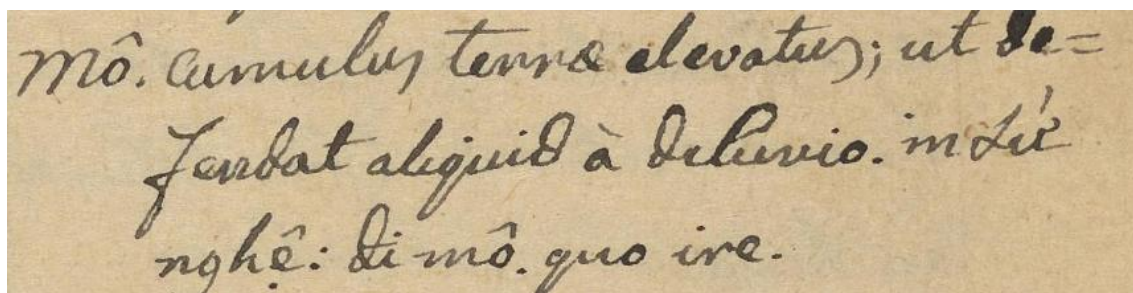 Mô. cumulus terræ elevatus; ut de=
fendat aliquid à deluvio. in xứ
nghệ: đi mô. quo ire.